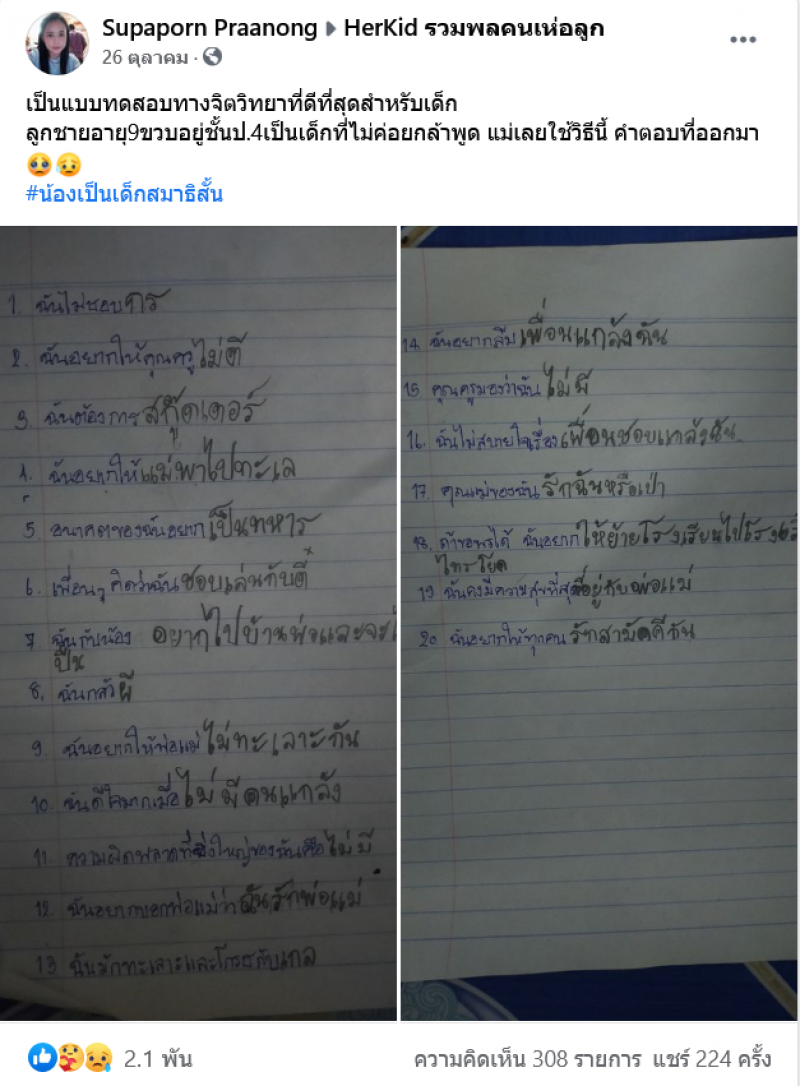 Supaporn Praanong ▸ HerKid รวมพลคนเห่อลูก
26 ตุลาคม ·
เป็นแบบทดสอบทางจิตวิทยาที่ดีที่สุดสำหรับเด็ก
ลูกชายอายุ9ขวบอยู่ชั้นป.4เป็นเด็กที่ไม่ค่อยกล้าพูด แม่เลยใช้วิธีนี้ คำตอบที่ออกมา
🥺😥
#น้องเป็นเด็กสมาธิสั้น
1. ฉันไม่ชอบ
2. ฉันอยากให้คุณครูไม่ตี
3 ฉันต้องการ สกู๊ตเตอร์
4. ฉันอยากให้แม่พาไปทะเล
5 อนาคตของฉันอยากเป็นทหาร
6. เพื่อนๆ คิดว่าฉันชอบเล่นกับ
7 ฉันกับน้อง อยากไปบ้านพ่อและ
ปืน
8. ฉันกลัวผี
9. ฉันอยากให้พ่อแม่ไม่ทะเลาะกัน
10. ฉันดีใจมากเมื่อไม่มีคนแกล้ง
11. ความผิดพลาดที่ยิ่งใหญ่ของฉันคือไม่มี
12. ฉันอยากบอกพ่อแม่ว่าฉันรักพ่อแม่
13 ฉันมักทะเลาะและโกรธกับเกล
14. ฉันอยากลืมเพื่อนแกล้งฉัน
15 คุณครูมองว่าฉันไม่มี
16. ฉันไม่สบายใจเรื่องเพื่อนชอบแกล้งฉัน
17. คุณแม่ของฉันรักฉันหรือเป่า
18. ถ้าขอพรได้ ฉันอยากให้ย้ายโรงเรียนไปโรงเรี
ไทรโยค
19 ฉันคงมีความสุขที่สุดอยู่กับพ่อแม่
20 ฉันอยากให้ทุกคนรักสามัคคีกัน
2.1 พัน
ความคิดเห็น 308 รายการ แชร์ 224 ครั้ง